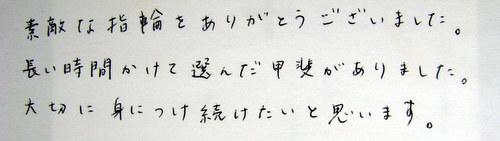 素敵な指輪をありがとうございました。
長い時間かけて選んだ甲斐がありました。
大切に身につけ続けたいと思います。